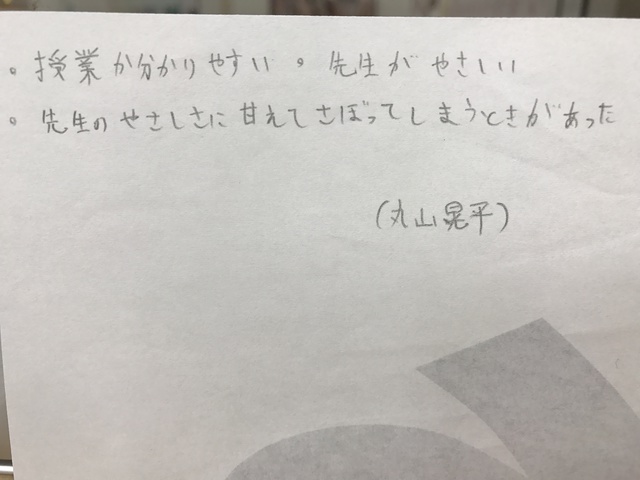 。授業か分かりやすい 。先生が やさしい
。先生の やさしさに 甘えて さぼってしまうときがあった
(丸山晃平)